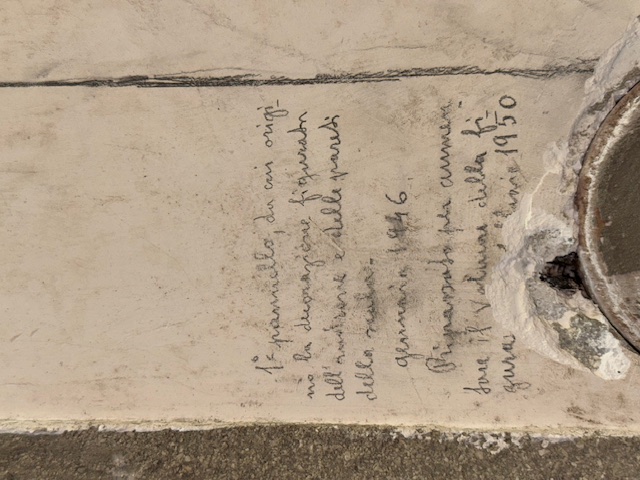 1º pannello, da cui origi-
nò la decorazione figurata
dell'androne e delle pareti
della scala.
gennaio 1946
Ripassato per aumen
tare il valore della fi-
gura 1950